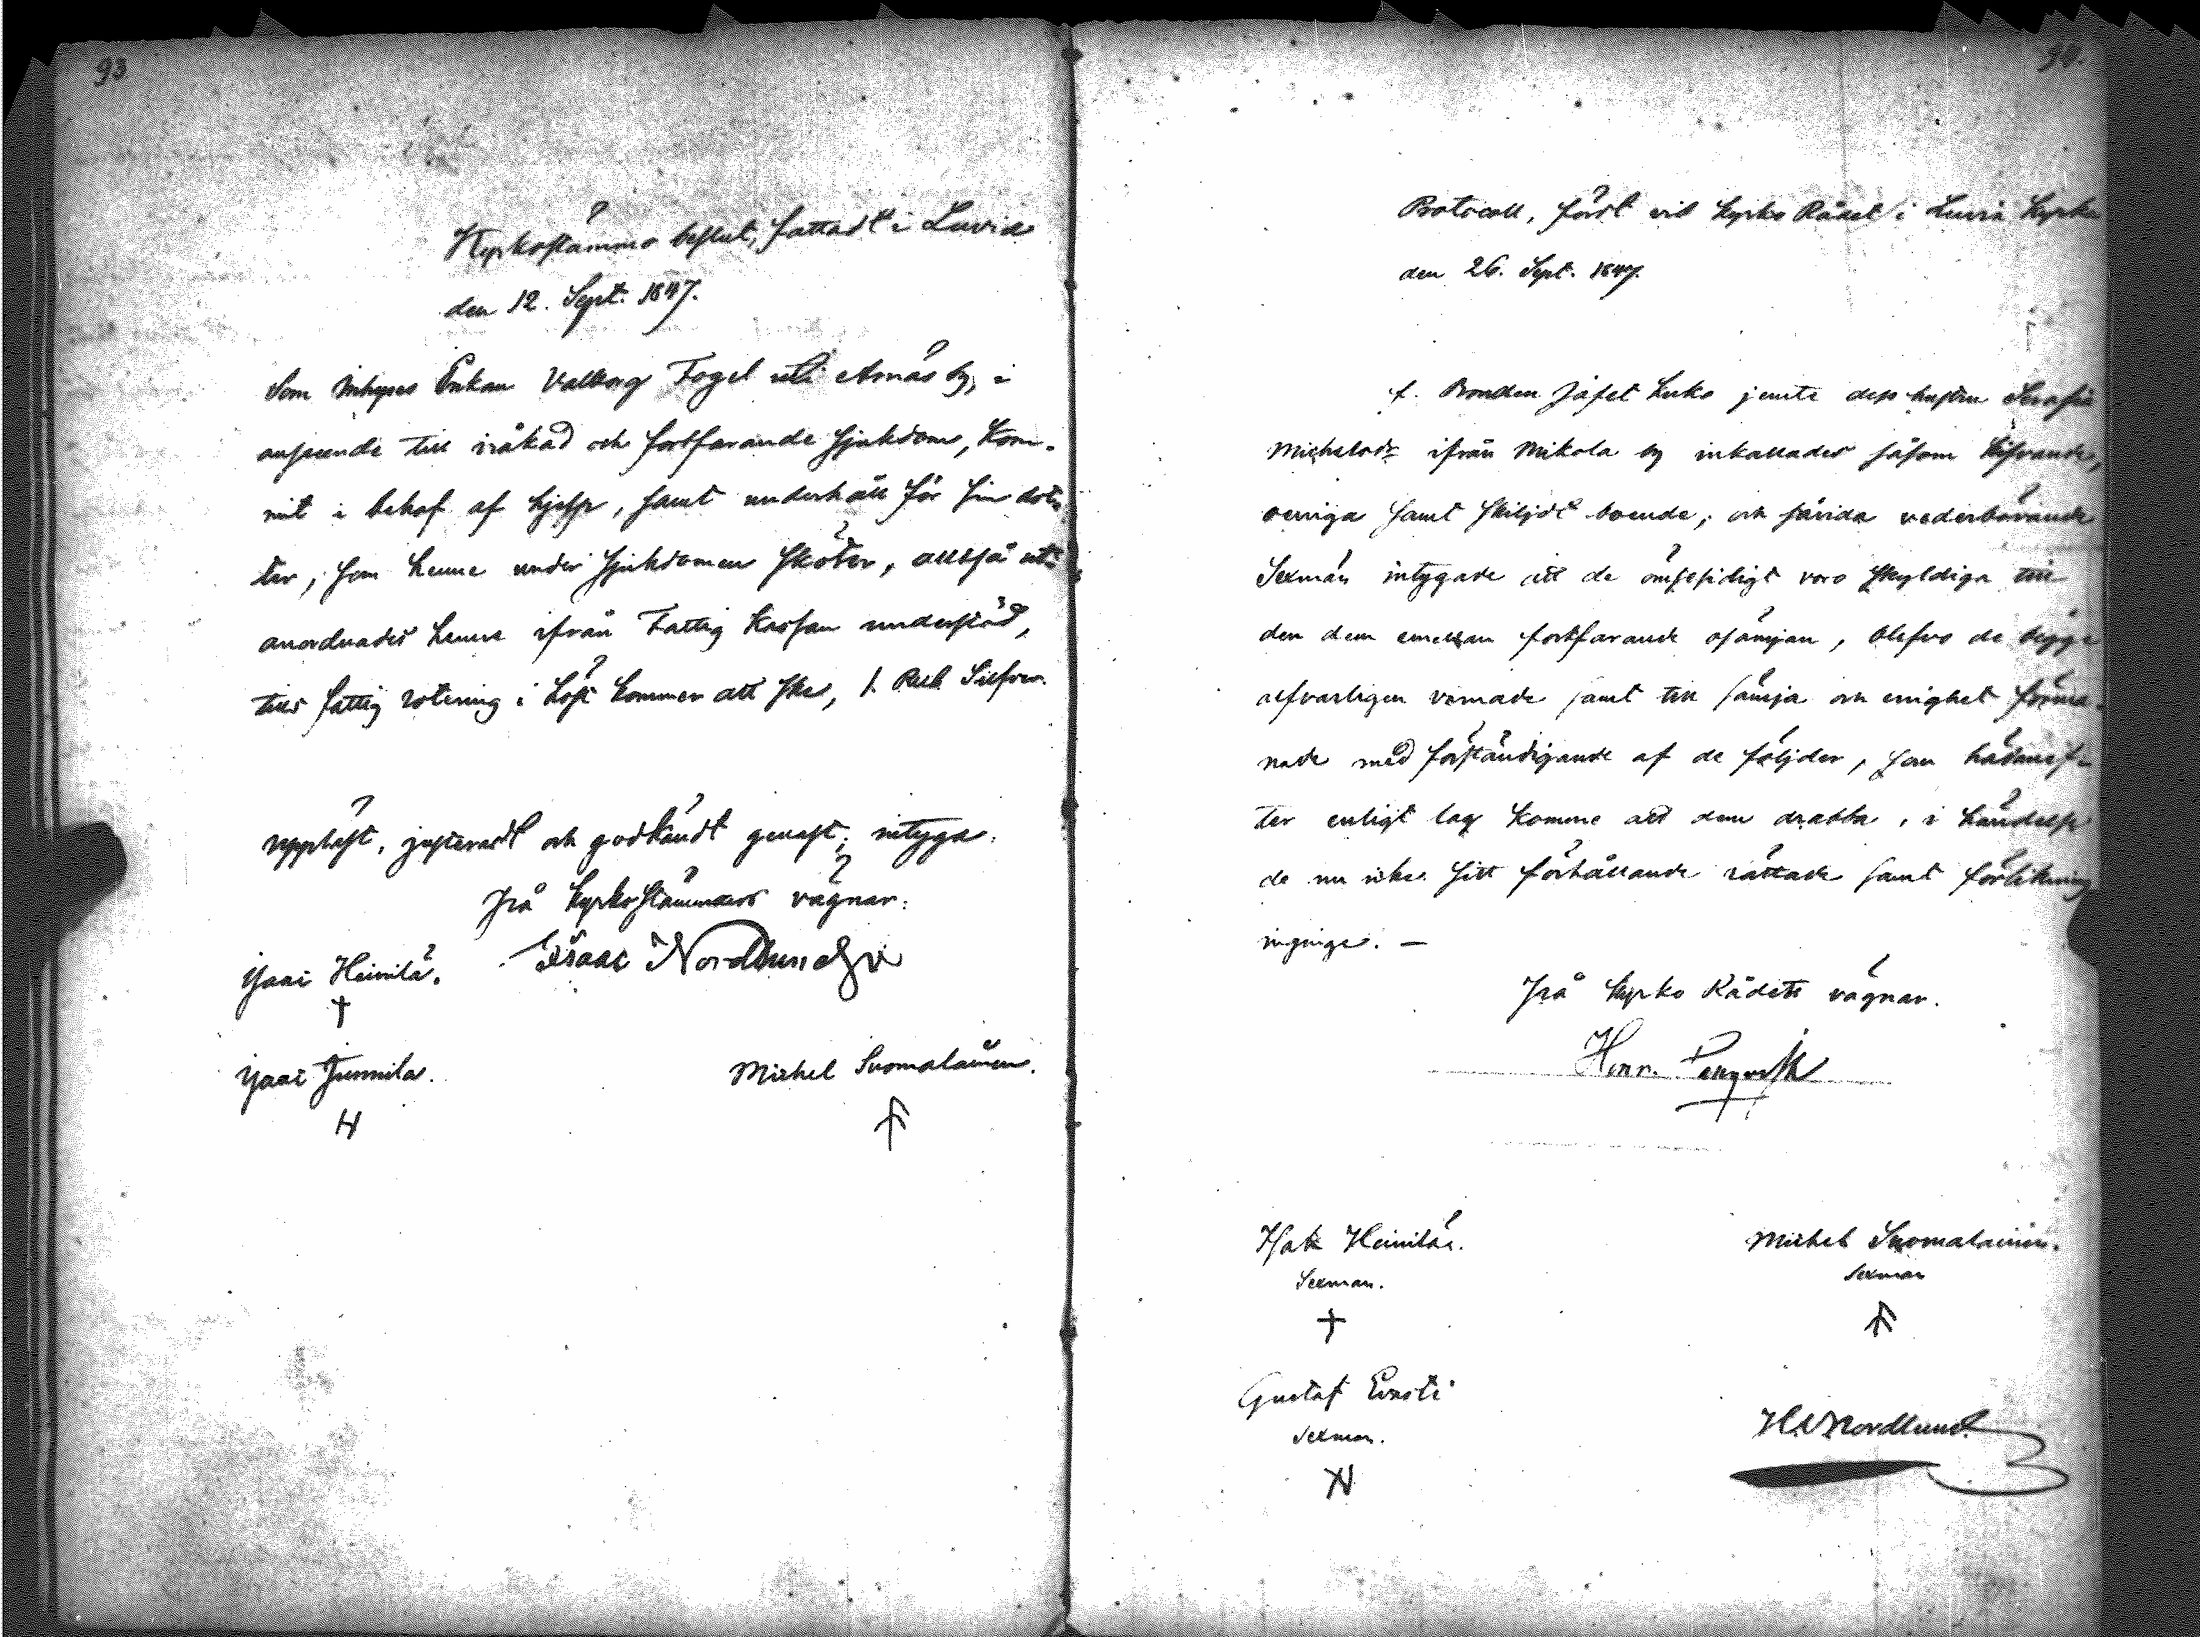 93
Kyrkostämmo beslut, fattadt i Luvia
den 12. Sept. 1847.
Som Inhyses Enkan Valborg Fogel uti Arnäs by, i
anseende till iråkad och fortfarande sjukdom, kom-
mit i behof af hjelp, samt underhåll för sin dot-
ter, som henne under sjukdomen sköter, alltså
anordnades henne ifrån Fattig Kassan understöd,
tills fattig rotering i höst kommer att ske, 1. Rub. Silfver.
uppläst, justeradt och godkändt genast; intyga:
På Kyrkostämmans vägnar:
Isaac Nordlund
Isaac Heinilä.
Isaac Junnila.
Michel Suomalainen.
94.
Protocoll, fördt vid Kyrko Rådet i Luvia Kyrka
den 26. Sept. 1847.
f. Bonden Jafet Luko jemte dess hustru Serafia
Michelsdr ifrån Mikola by inkallades såsom kifvande,
oeniga samt skiljdt boende; och sårida vederbörande
Sexmän intygade att de ömsesidigt voro skyldiga till
den dem emellan fortfarande osämjan, blefvo de begge
alfvarligen varnade samt till sämja och enighet förma-
nade med förständigande af de följder, som hädanef-
ter enligt lag komme att dem drabba, i händelse
de nu icke sitt förhållande rättade samt förlikning
ingingo. —
På Kyrko Rådets vägnar.
Henr.
Isak Heinilä.
Sexman.
Michel Suomalainen.
Sexman
Gustaf Ernsti
Sexman.
Nordlund.